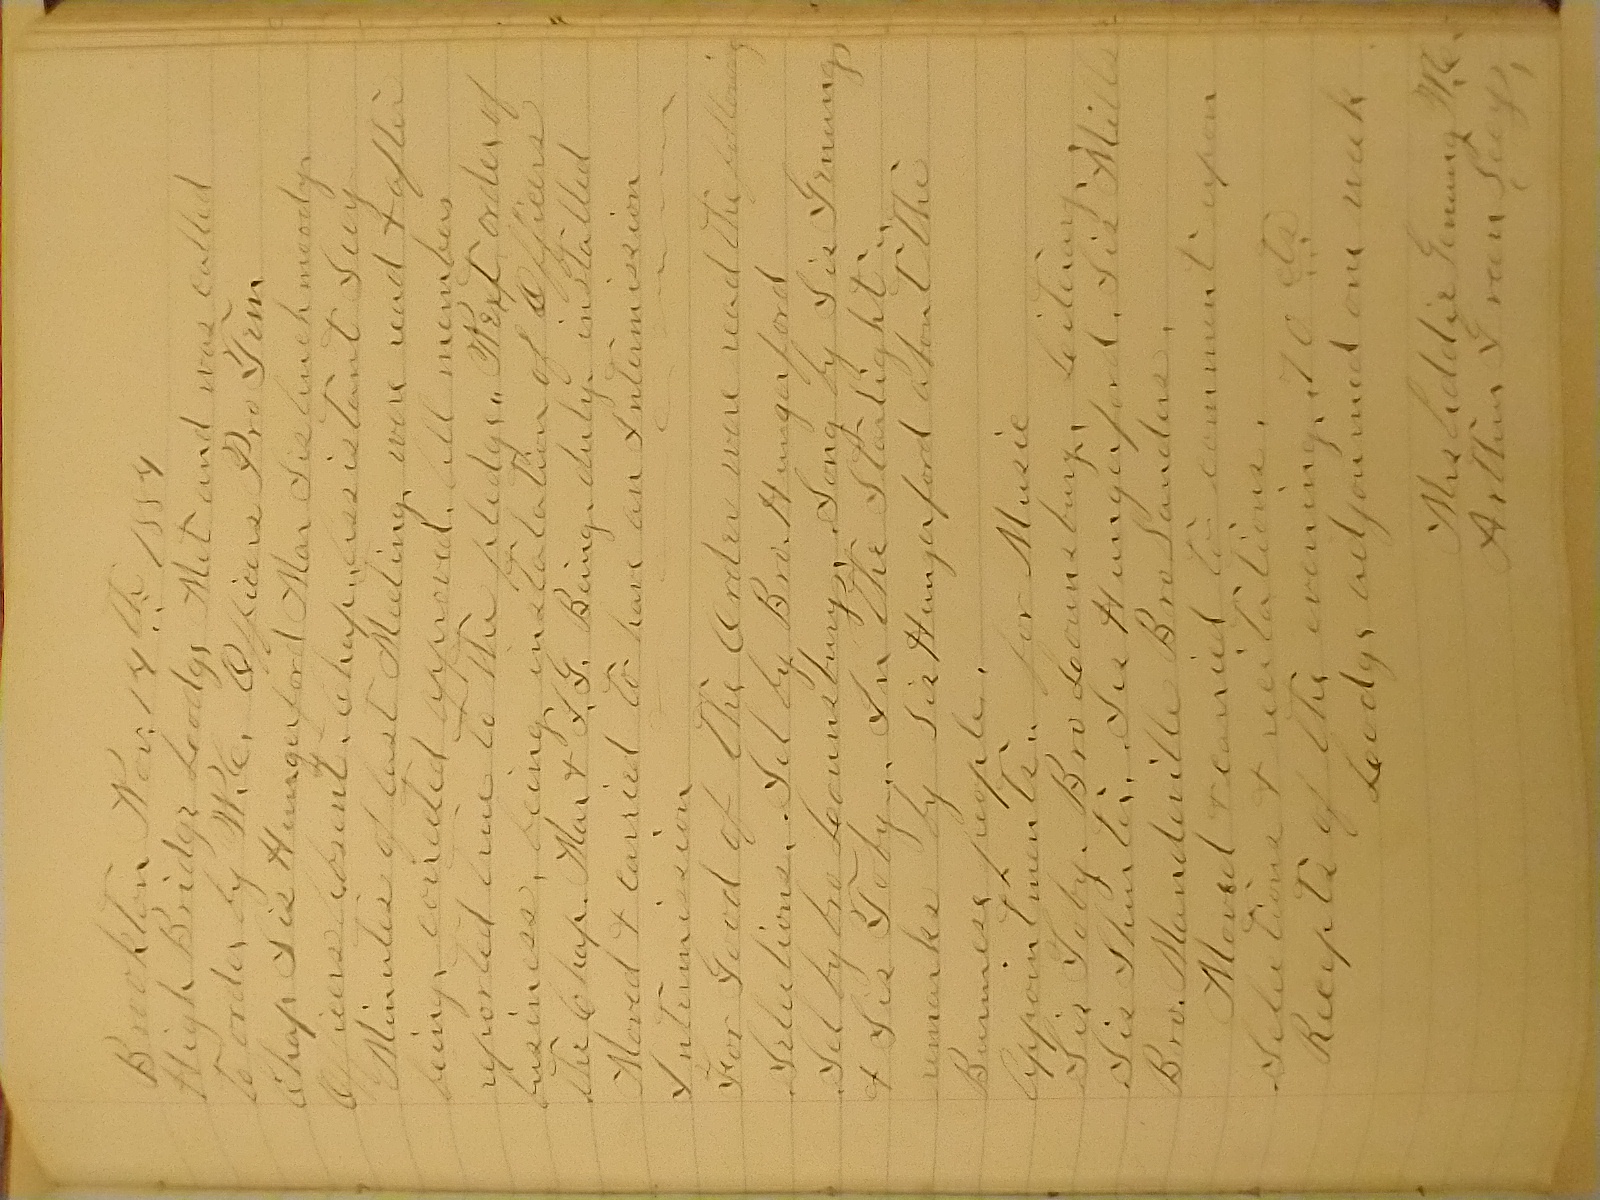 Brookton Nov. 14th 1884
High Bridge Loodge Met and was called
to order by W.C. Officers Pro Tem
Chap Sis Hungerford Mar Sis Auchmoody
Officers absent. Chap. assistant Secy
Minutes of last Meeting were read & after
being corrected approved. All members
reported true to the pledge. Next order of
business, being instalation of Officers
the Chap. Mar & I.G. Being duly installed
Moved & carried to have an Intermission
Intermission
For Good of the Order were read the following
Selections. Sel by Bro. Hungerford
Sel by bro Lounsbury, Song by Sis Genung
& Sis Toby.. In the Starlight ..
remarks by Sis Hungerford about the
Burmese people.
Appointments.. for Music
Sis Toby. Bro Lounsbury, Leiterary,
Sis Shurter. Sis Hungerford. Sis Mills
Bro. Mandeville Bro Sanders.
Moved & carried to comment upon
Selections & recitations.
Receipts of the evening .70 cts
Loodge adjourned one week
Mrs Addie Genung W.C.
Arthur Green Secy,